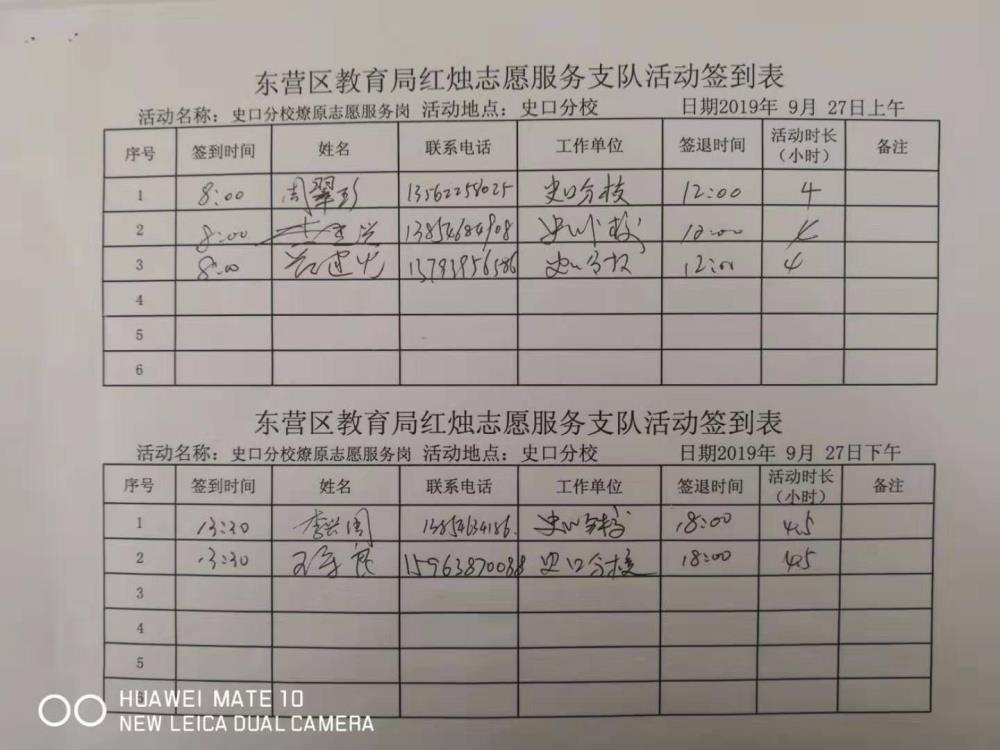 东营区教育局红烛志愿服务支队活动签到表
活动名称：史口分校燎原志愿服务岗 活动地点：史口分校 日期2019年 9月 27日上午
序号 签到时间 姓名 联系电话 工作单位 签退时间 活动时长（小时） 备注
1 8:00 周翠彭 13562257025 史口分校 12:00 4
2 8:00 13854684908 史口分校 12:00 4
3 8:00 史口分校 12:00 4
4
5
6
东营区教育局红烛志愿服务支队活动签到表
活动名称：史口分校燎原志愿服务岗 活动地点：史口分校 日期2019年 9月 27日下午
序号 签到时间 姓名 联系电话 工作单位 签退时间 活动时长（小时） 备注
1 13:30 李兴周 史口分校 18:00 4.5
2 13:30 15963870088 史口分校 18:00 4.5
3
4
5
6
HUAWEI MATE 10
NEW LEICA DUAL CAMERA